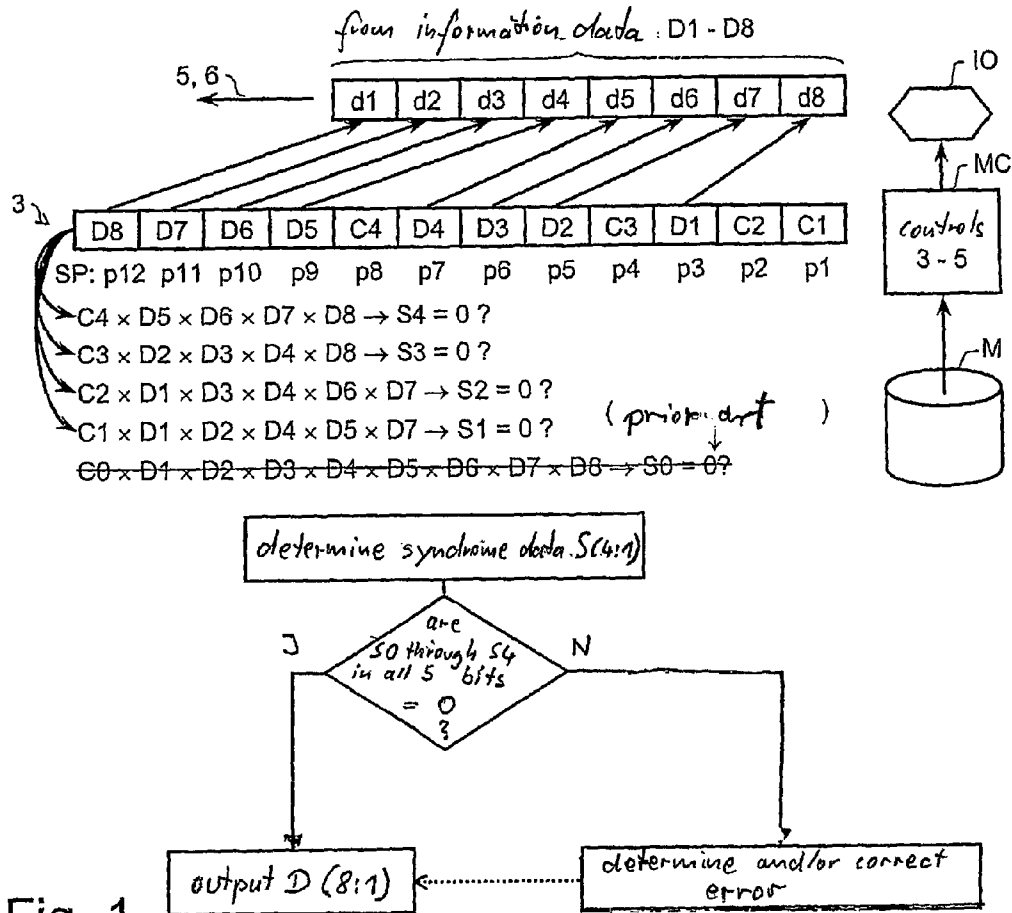 from information data : D1 - D8
5, 6
d1 d2 d3 d4 d5 d6 d7 d8
IO
MC
3
D8 D7 D6 D5 C4 D4 D3 D2 C3 D1 C2 C1
controls
3 - 5
SP: p12 p11 p10 p9 p8 p7 p6 p5 p4 p3 p2 p1
C4 × D5 × D6 × D7 × D8 → S4 = 0 ?
M
C3 × D2 × D3 × D4 × D8 → S3 = 0 ?
C2 × D1 × D3 × D4 × D6 × D7 → S2 = 0 ?
(prior art )
C1 × D1 × D2 × D4 × D5 × D7 → S1 = 0 ?
C0 × D1 × D2 × D3 × D4 × D5 × D6 × D7 × D8 → S0 = 0?
determine syndrome data S(4:1)
are
S0 through S4
in all 5 bits
= 0
?
J
N
output D (8:1)
determine and/or correct
error
Fig. 1